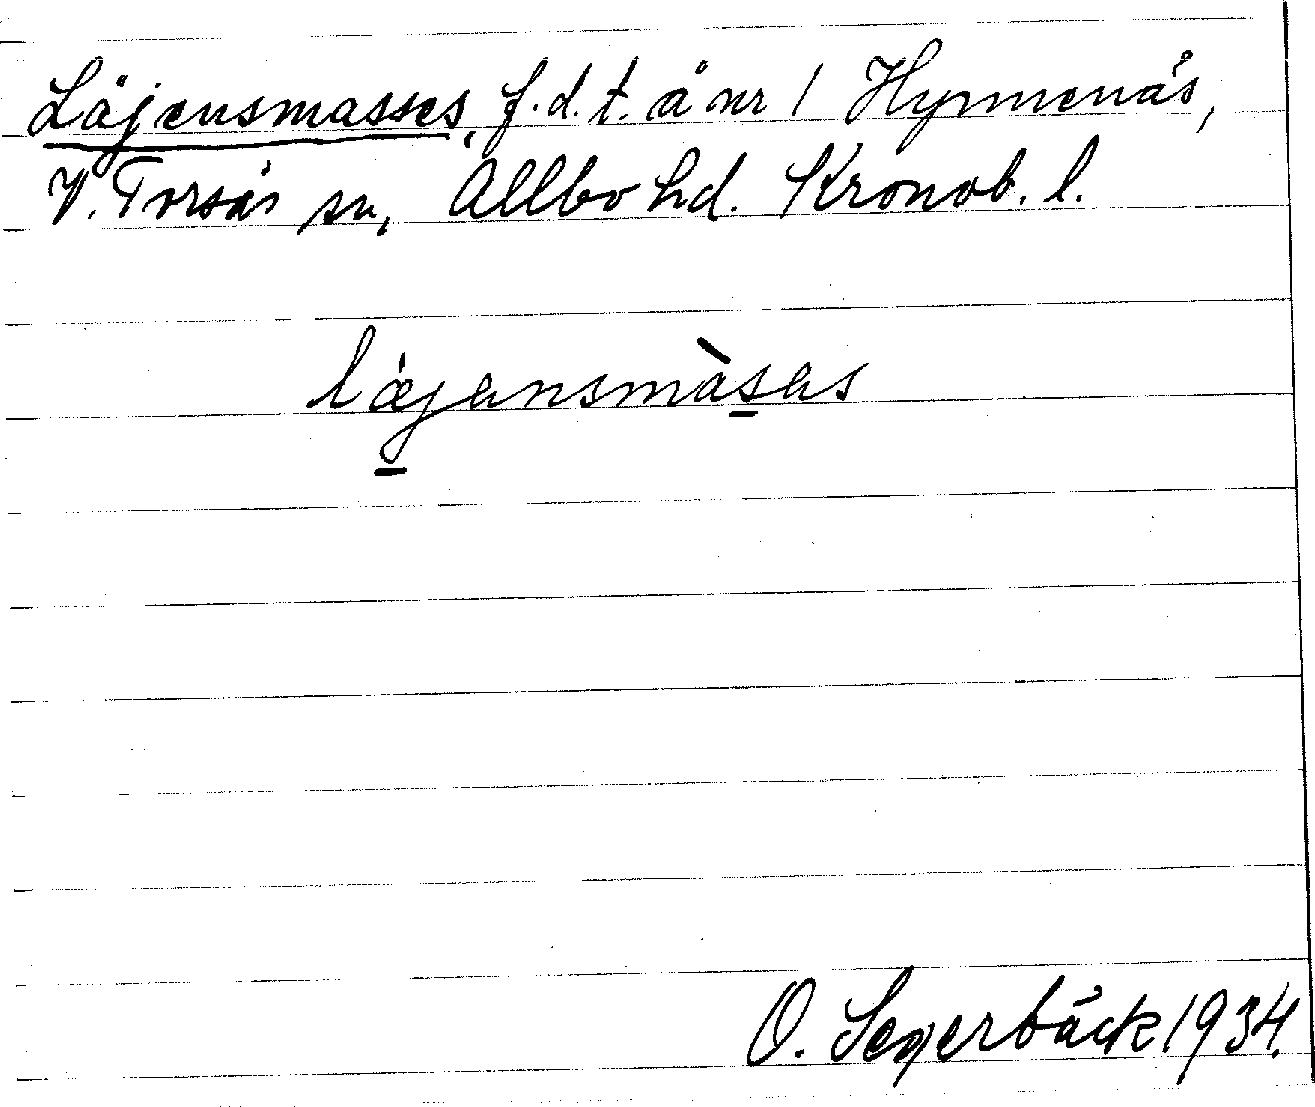 Läjensmasses, f.d.t. å nr 1 Hymenäs,
V. Torsås sn, Allbo hd. Kronob. l.
lǽjensmàses
O. Segerbäck 1934.